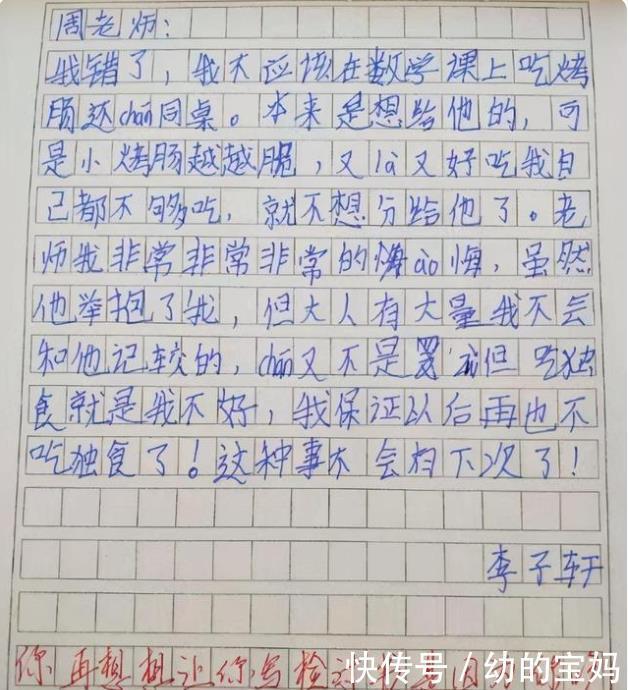 周老师：
我错了，我不应该在数学课上吃烤
肠还chán同桌。本来是想给他的，可
是小烤肠越越脆，又là又好吃我自
己都不够吃，就不想分给他了。老
师我非常非常非常的悔ào悔，虽然
他举抱了我，但大人有大量我不会
和他记较的，chán又不是罪 但吃独
食就是我不好，我保证以后再也不
吃独食了！这种事不会有下次了！
李子轩
你再想想让你写检讨
快传号／幼的宝妈